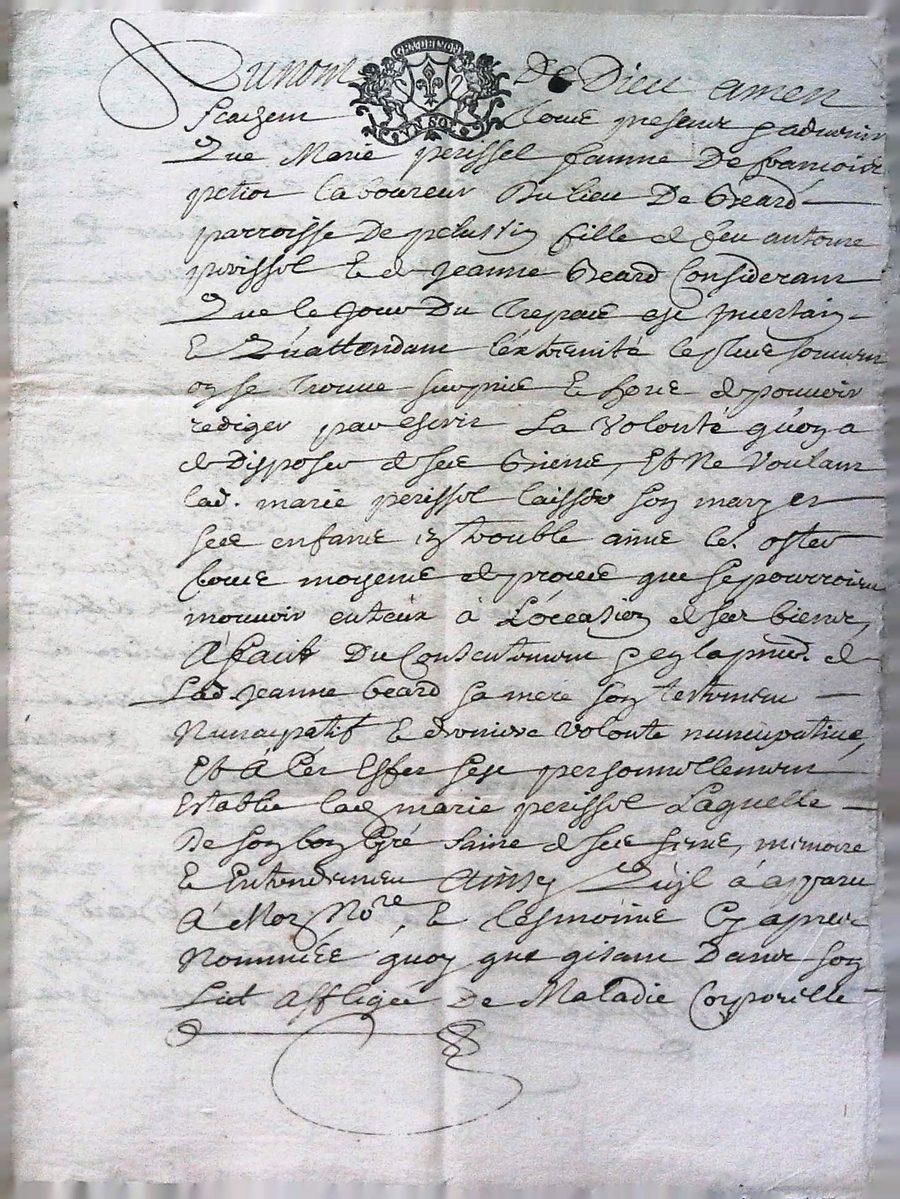 Au nom de Dieu amen
Scachent toue presenz & advenir
Que Marie perissel famme De francois
petiot laboureur du lieu De Beard
parroisse De pelussin fille de feu antoine
perissel & de jeanne Beard Considerant
Que le jour Du Trepas est jncertain
& Qu'attendant l'extremité le plus souvent
on se trouve surpris & hors de pouvoir
rediger par escrit La Volonté qu'on a
de Disposer de ses Biens, Et Ne Voulant
lad. marie perissel laisser son mary et
ses enfans en trouble ains les oster
toue moyens de proces que se pourroient
mouvoir entreux à L'occasion de ses biens,
A faict Du Consentement & en la pnce. de
Lad. jeanne Beard sa mere son testament
Nuncupatif & derniere volonte nuncupative,
Et A Cet Effet s'est personnellement
Establie lad. marie perissel Laquelle
De son bon Gré saine de ses sens, memoire
& Entendement Ainsy Qu'jl à apparu
A Moy Nore, & tesmoins Cy apres
Nommés quoy que gisant Dans son
Lict Affligée De Maladie Corporelle